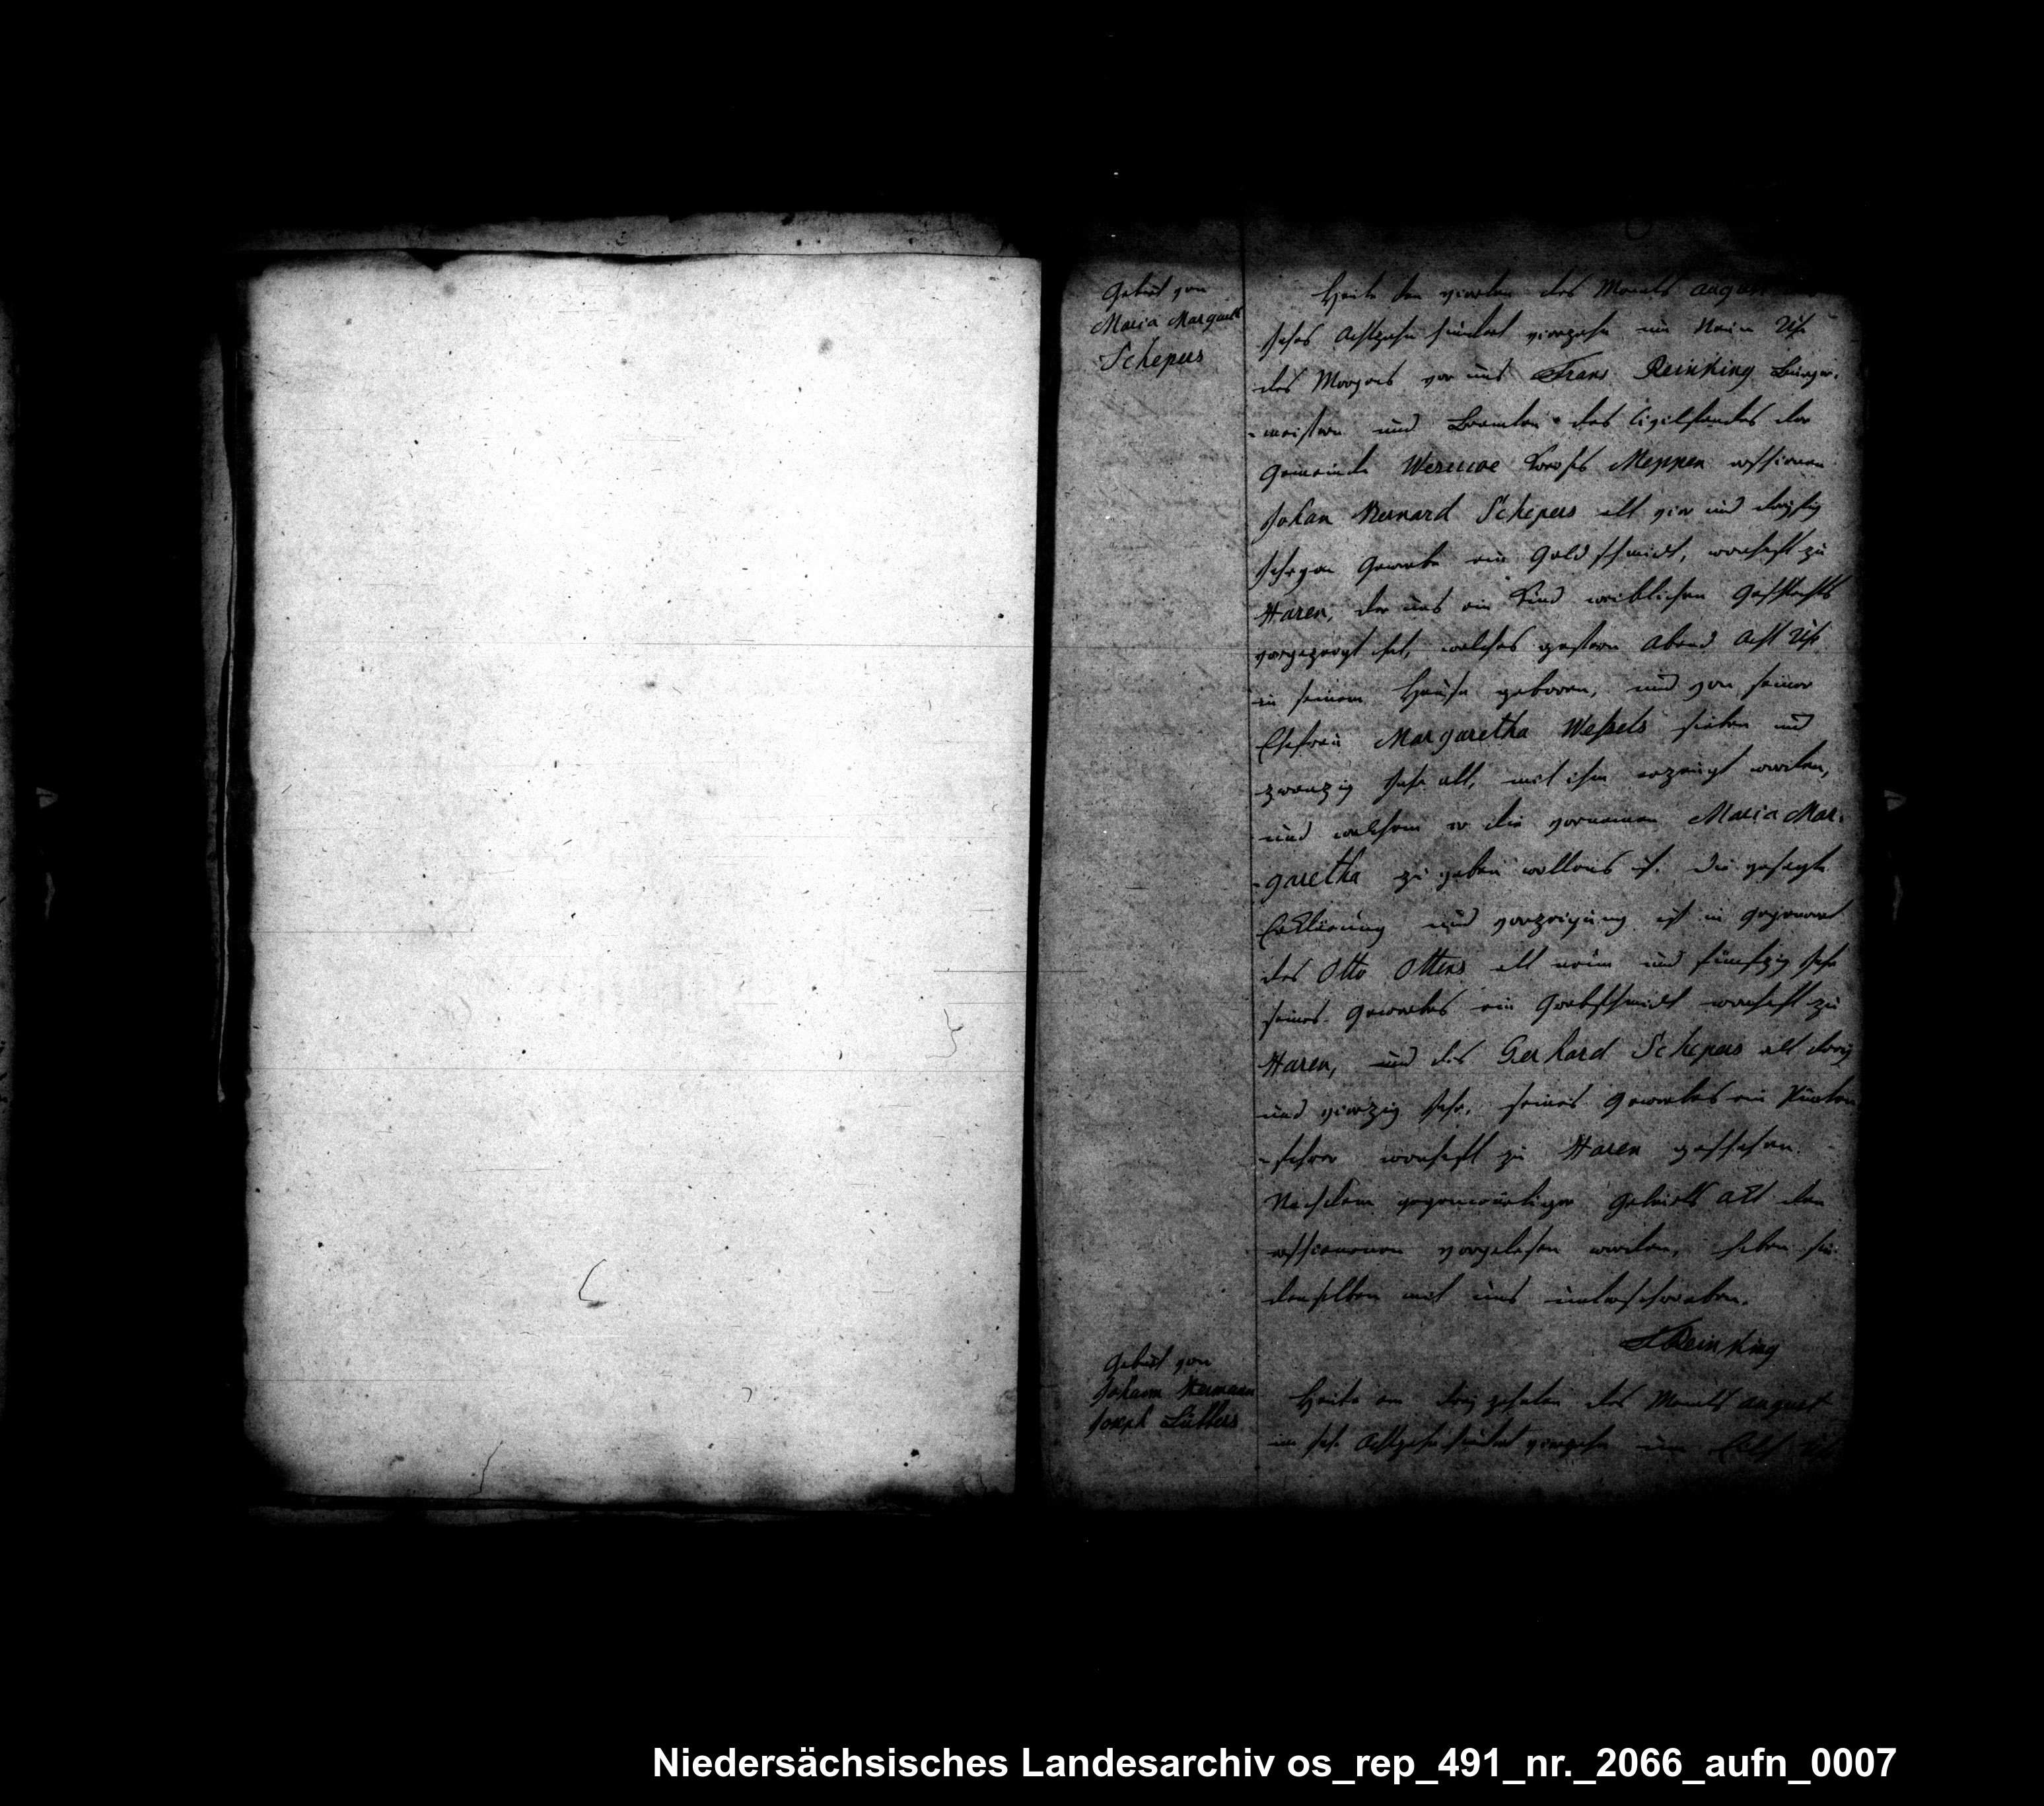 Geburt von
Maria Margaret
Schepers
Heute den vierten des Monats august
Jahrs Achtzehn hundert vierzehn um Neun Uhr
des Morgens vor uns Franz Reinking Bürger-
-meistern und Beamten des Civilstandes der
Gemeinde Wesuwe Kreises Meppen erschienen
Johan Bernard Schepers alt vier und dreyßig
Jahr von Gewerbe ein Goldschmidt, wonhaft zu
Haren, der uns ein Kind weiblichen Geschlechts
vorgezeigt hat, welches gestern Abend Acht Uhr
in seinem Hause geboren, und von seiner
Ehefrau Margaretha Weßels sieben und
zwanzig Jahr alt, mit ihm erzeugt worden,
und welchem er die vornamen Maria Mar-
-garetha zu geben wollens ist. Die gesagte
Erklärung und vorzeigung ist in gegenwart
des Otto Ottens alt neun und fünfzig Jahr
seines Gewerbes ein wonhaft zu
Haren, und des Gerhard Schepers alt drey
und vierzig Jahr, seines Gewerbes ein
wonhaft zu Haren geschehen.
Nachdem gegenwärtiger Geburts Akt den
erschienenen vorgelesen worden, haben sie
denselben mit uns unterschrieben.
FReinking
Geburt von
Johann Hermann
Joseph Lübbers
Heute den drey zehnten des Monats august
im Jahr Achtzehn hundert vierzehn um Eilf Uhr